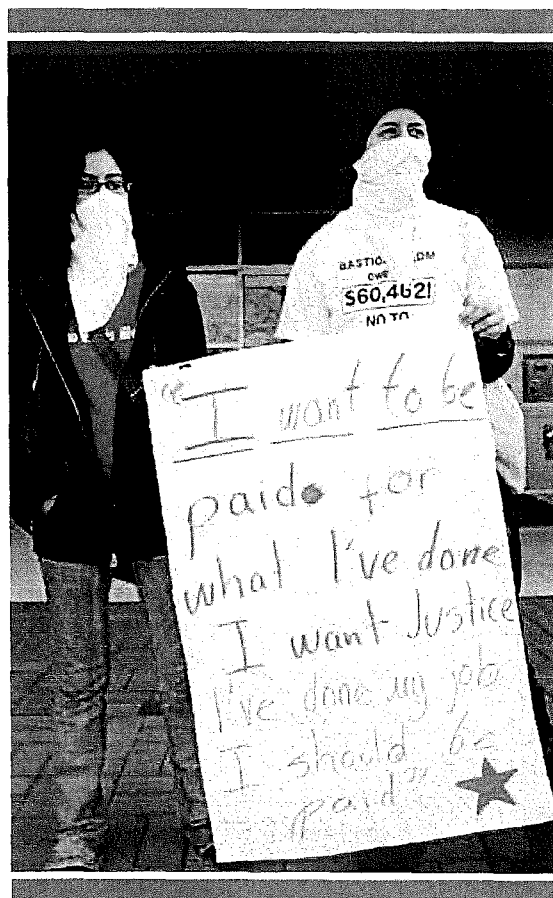 OWE
$60,462!
NO TO
"I want to be
paid for
what I've done
I want Justice
I've done my job
I should be
paid"